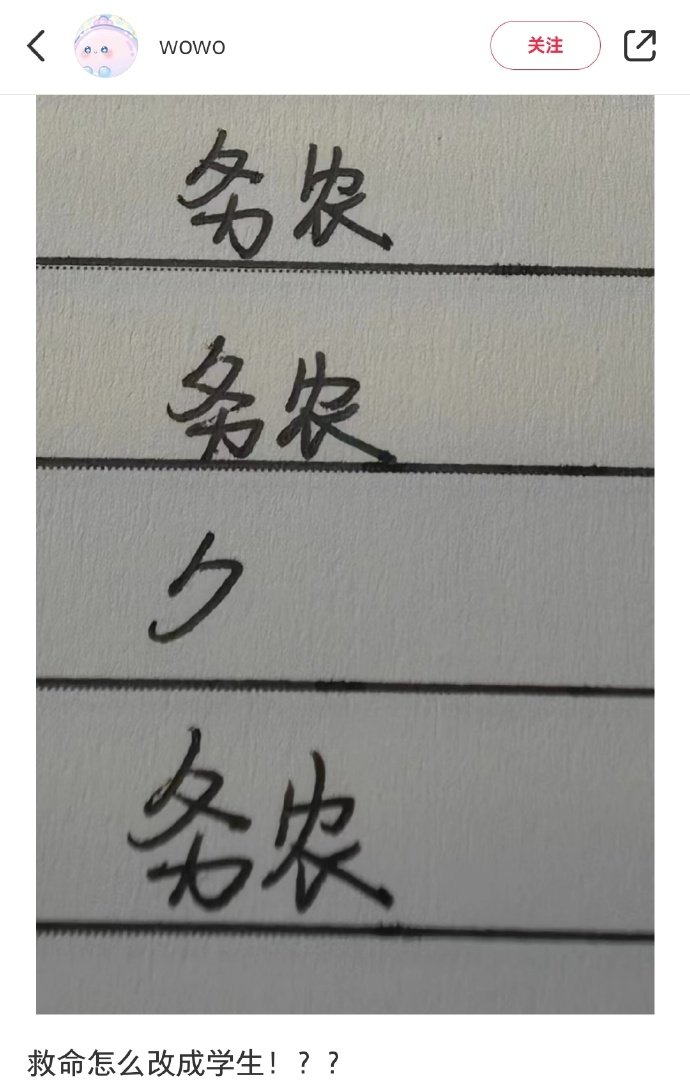 wowo
关注
务农
务农
ク
务农
救命怎么改成学生！？？